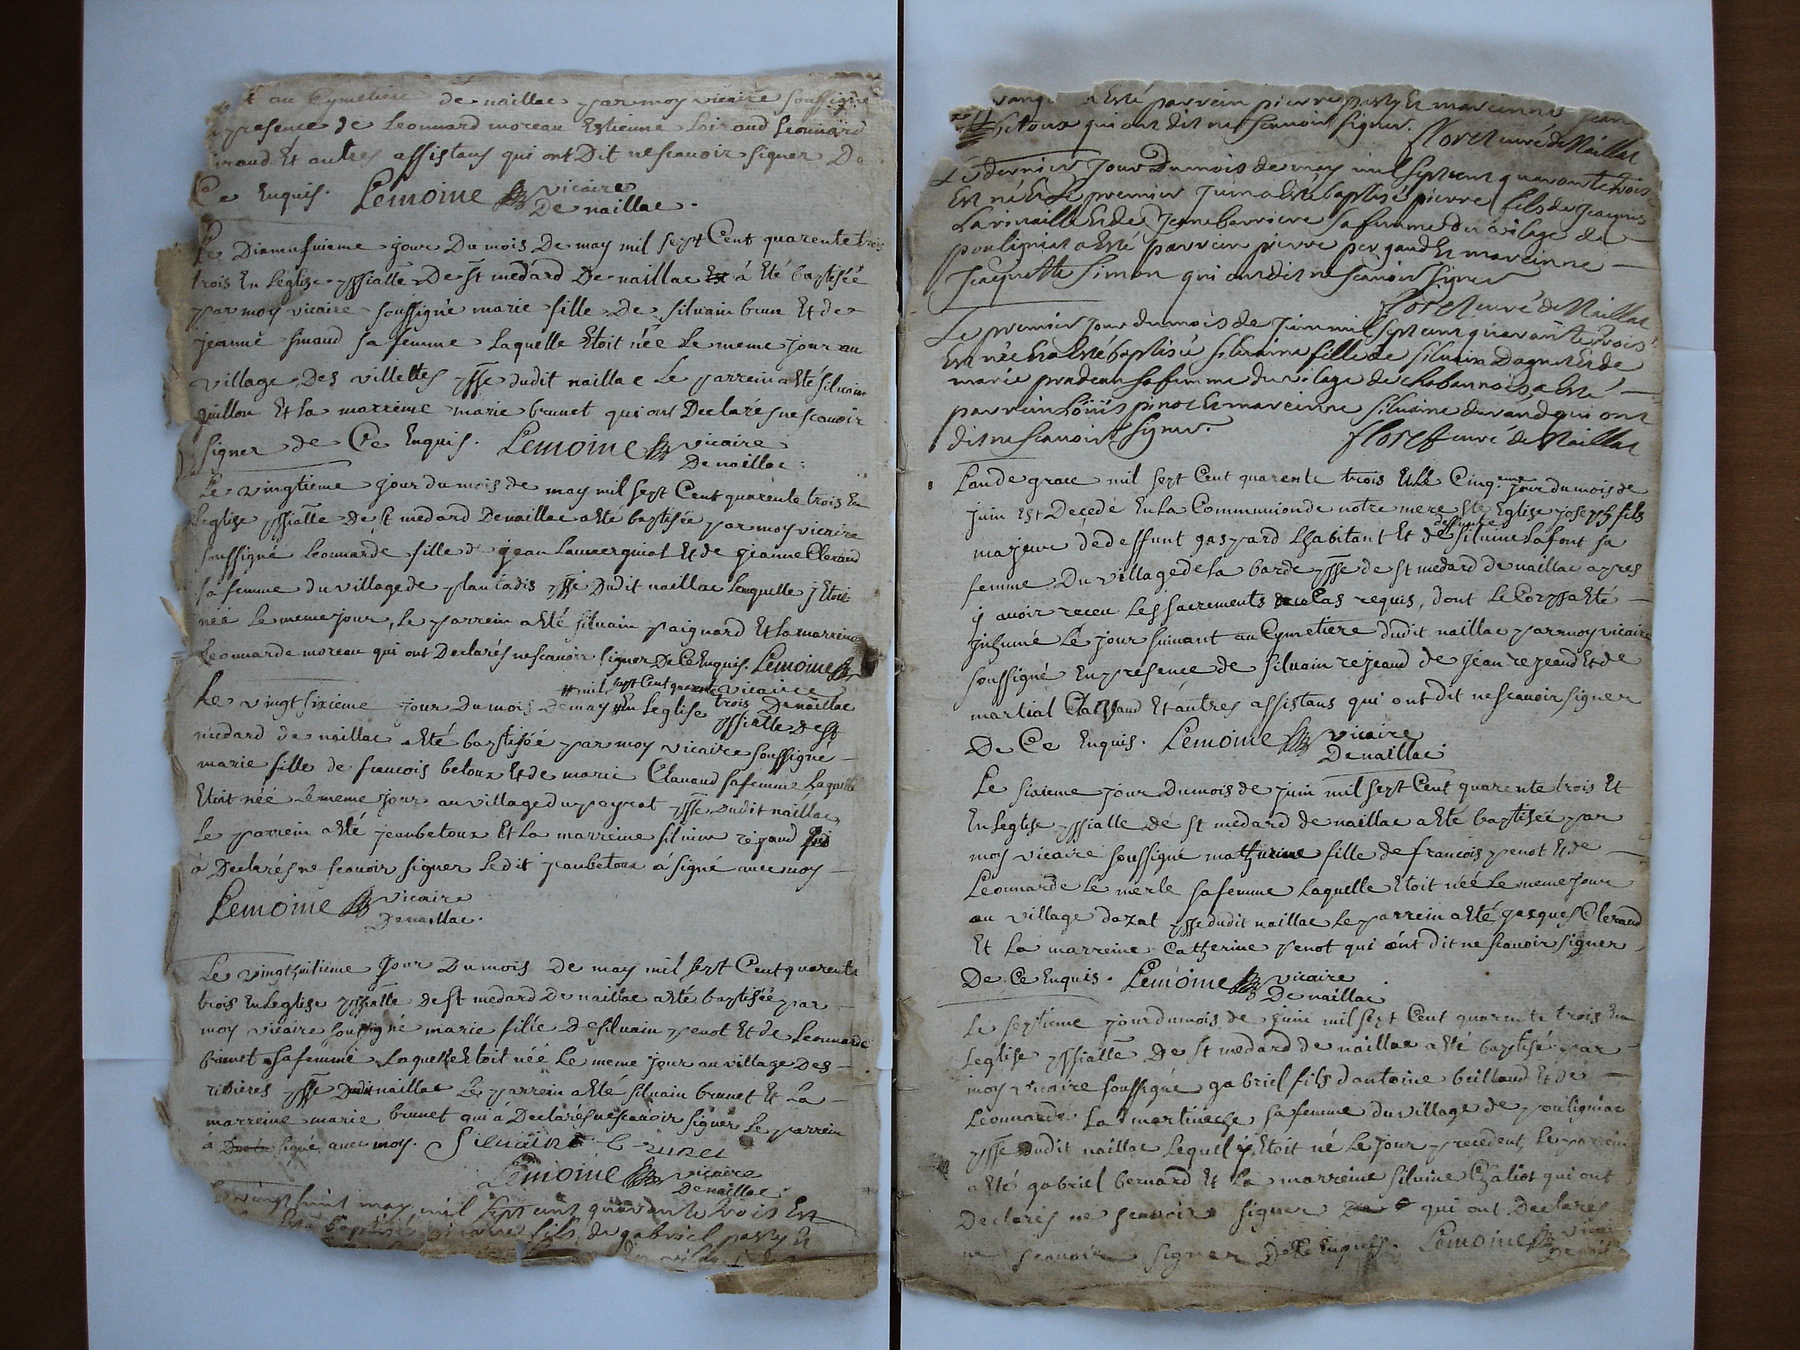 au Cymetiere de naillac par moy vicaire soussigné
presence de Leonnard moreau Estienne Loiraud Leonnard
Et autres assistans qui ont Dit ne scavoir signer De
Ce Enquis. Lemoine vicaire
De naillac.
Le Dixneufuieme jour Du mois De may mil sept Cent quarente trois
trois En Leglise pssialle De st medard De naillac à Eté baptisée
par moy vicaire soussigné marie fille De silvain brun Et de
jeanne sinaud sa femme Laquelle Etoit née Le meme jour au
village Des villettes psse dudit naillac Le parrein a Eté silvain
guillon Et La marreine marie brunet qui ont Declarés ne scavoir
signer de Ce Enquis. Lemoine vicaire
De naillac.
Le vingtieme jour du mois de may mil sept Cent quarente trois En
Leglise pssialle de st medard De naillac a Eté baptisée par moy vicaire
soussigné Leonnarde fille de jean Et de jeanne Cleraud
sa femme du village de plancadis psse Dudit naillac Lenquelle j Etoit
née Le meme jour, Le parrein a Eté silvain paignard Et La marreine
Leonnarde moreau qui ont Declarés ne scavoir signer De Ce Enquis. Lemoine
vicaire
De naillac
# mil sept Cent quarente trois
Le vingt sixieme jour Du mois De may # En Leglise pssialle De st
medard de naillac a Eté baptisée par moy vicaire soussigné
marie fille de francois betoux Et de marie Clavaud sa femme Laquelle
Etoit née Le meme jour au village du peyrat psse dudit naillac,
Le parrein a Eté jean betoux Et La marreine silvine rejaud qui
à Declarés ne scavoir signer Ledit jean betoux à signé avec moy
Lemoine vicaire
De naillac.
Le vingt huitieme Jour Du mois De may mil sept Cent quarente
trois En Leglise pssialle de st medard De naillac a Eté baptisée par
moy vicaire soussigné marie fille De silvain penot Et de Leonnarde
brunet sa femme Laquelle Etoit née Le meme jour au village Des
rivieres psse Dudit naillac Le parrein a Eté silvain brunet Et La
marreine marie brunet qui à Declarés ne scavoir signer Le parrein
à signé avec moy. Silvain brunet
Lemoine vicaire
De naillac
Le vingt huit may mil sept cent quarante trois Est
baptisé pierre fils de gabriel pasty Et
du vilage
a Esté parrein pierre pasty Et marainne
betoux qui ont dit ne scavoir signer. floret curé de Naillat
Le dernier Jour Du mois de may mil sept cent quarante trois
Est né Et Le premier Juin a Esté baptisé pierre fils de Jacques
Lavinaille Et de Jeane barriere sa femme du vilage de
pouligniat a Esté parrein pierre pergaud Et marainne
Jacquette Simon qui ont dit ne scavoir signer
floret curé de Naillat
Le premier Jour du mois de Juin mil sept cent quarante trois
Est née Et a Esté baptisée silvaine fille de silvain Dagnet Et de
marie pradeau sa femme du vilage de chabannois, a Esté
parrein Loüis pinot Et marainne silvaine durand qui ont
dit ne scavoir signer. floret curé de Naillat
Lan de grace mil sept Cent quarente trois Et Le Cinq.eme jour du mois de
juin Est Decedé En La Communion de notre mere ste Eglise joseph fils
majeur de deffunt gaspard Lhabitant Et de deffunte silvine Lafont sa
femme Du village de La barde psse de st medard de naillac apres
y avoir receu Les sacrements au Cas requis, dont Le Corps a Eté
jnhumé Le jour suivant au Cymetiere dudit naillac par moy vicaire
soussigné En presence de silvain rejeaud de jean rejeaud Et de
martial Et autres assistans qui ont dit ne scavoir signer
De Ce Enquis. Lemoine vicaire
De naillac
Le sixieme jour Du mois de juin mil sept Cent quarente trois Et
En Leglise pssialle de st medard de naillac a Eté baptisée par
moy vicaire soussigné mathurine fille de francois penot Et de
Leonnarde Le merle sa femme Laquelle Etoit née Le meme jour
au village dazat psse dudit naillac Le parrein a Eté jacques Cleraud
Et La marreine Catherine penot qui ont dit ne scavoir signer
De Ce Enquis. Lemoine vicaire
De naillac
Le septieme jour du mois de juin mil sept Cent quarente trois En
Leglise pssialle De st medard de naillac a Eté baptisé par
moy vicaire soussigné gabriel fils dantoine beillaud Et de
Leonnarde La martinesche sa femme du village de pouligniac
psse dudit naillac Lequel j Etoit né Le jour precedent, Le parrein
a Eté gabriel bernard Et La marreine silvine Chaliot qui ont
Declarés ne scavoir signer qui ont Declarés
ne scavoir signer De Ce Enquis. Lemoine